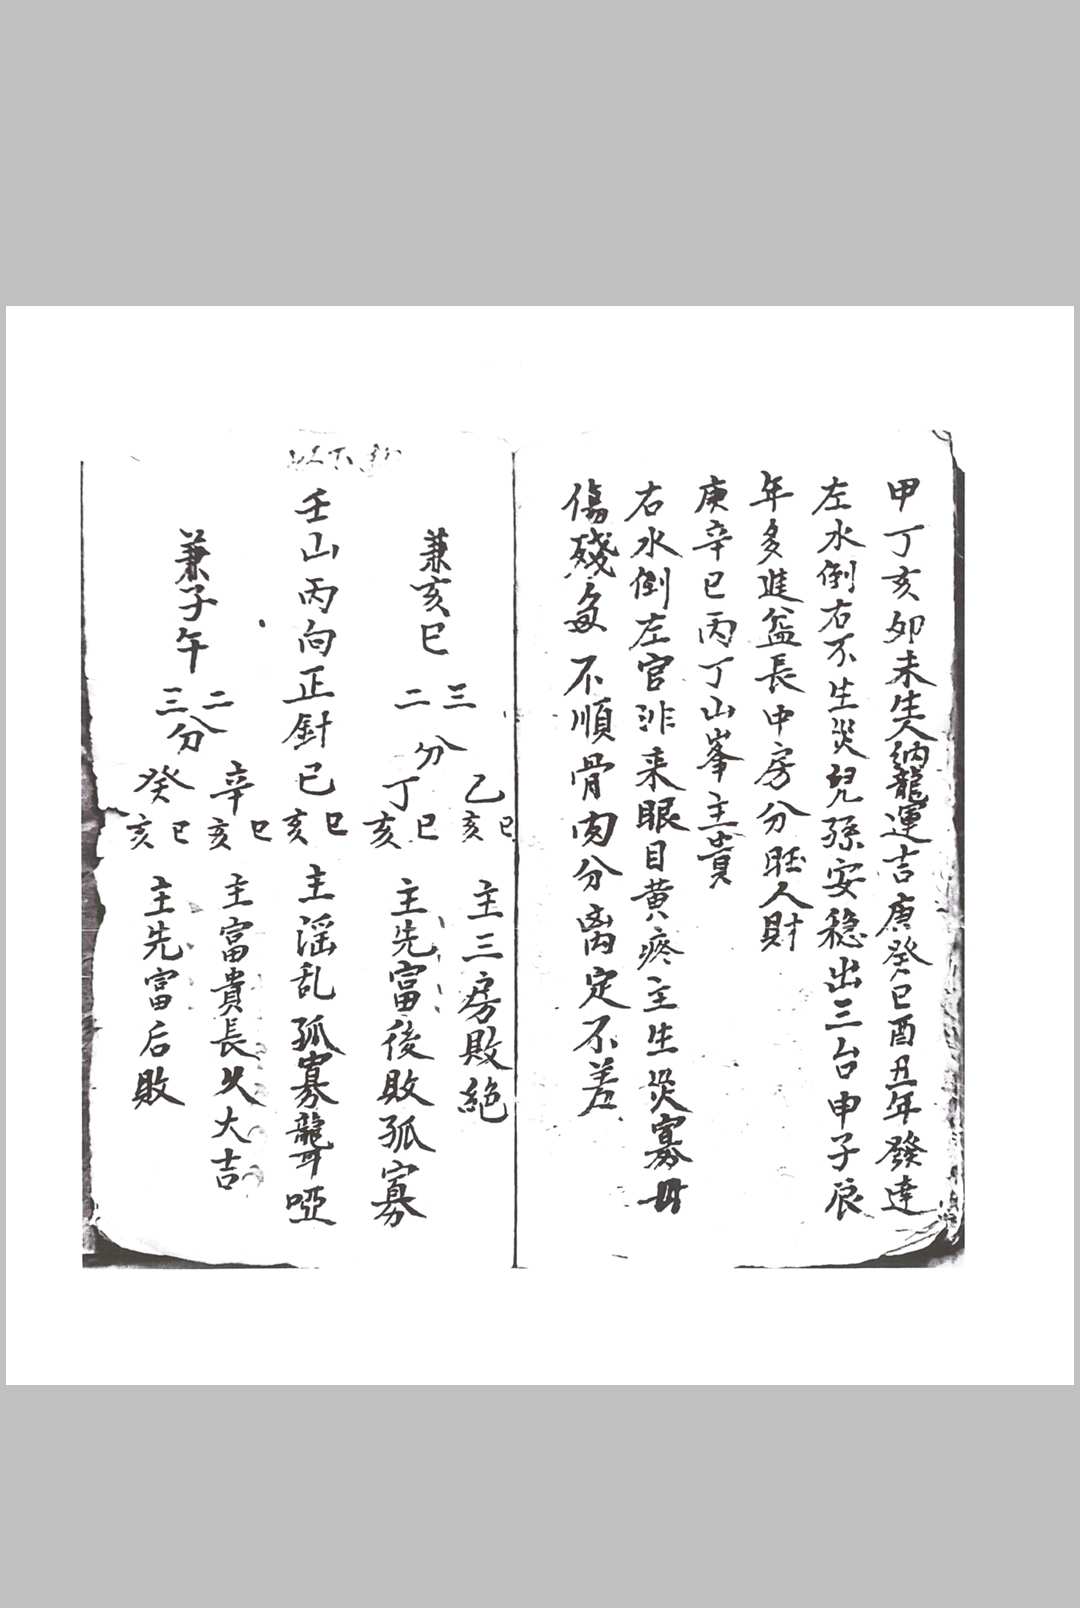 甲丁亥卯未生人納龍運吉庚癸巳酉丑年發達
左水倒右不生災兒孫安穩出三台申子辰
年多進益長中房分旺人財
庚辛巳丙丁山峯主貴
右水倒左官非來眼目黄疼主生災寡母
傷殘多不順骨肉分离定不差
兼亥巳
三二分
乙巳亥 主三房敗絕
丁巳亥 主先富後敗孤寡
壬山丙向正針
己巳亥 主淫乱孤寡聾啞
兼子午
二三分
辛巳亥 主富貴長久大吉
癸巳亥 主先富后敗